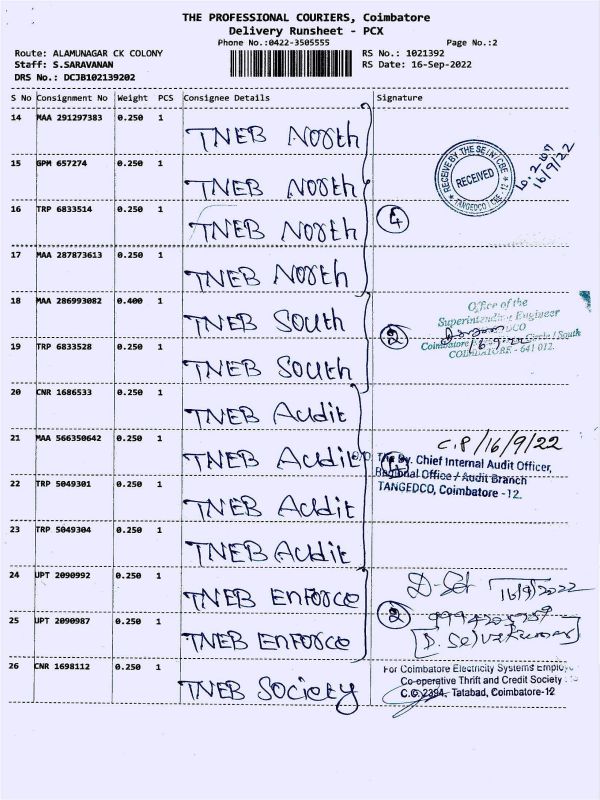 THE PROFESSIONAL COURIERS, Coimbatore
Delivery Runsheet - PCX
Phone No.:0422-3505555
Page No.:2
Route: ALAMUNAGAR CK COLONY
RS No.: 1021392
Staff: S.SARAVANAN
RS Date: 16-Sep-2022
DRS No.: DCJB102139202
S No Consignment No Weight PCS Consignee Details Signature
14 MAA 291297383 0.250 1 TNEB North
15 GPM 657274 0.250 1 TNEB North
RECEIVE BY THE SE/N/CBE
RECEIVED
TANGEDCO / CBE - 12
16/9/22
16 TRP 6833514 0.250 1 TNEB North
4
17 MAA 287873613 0.250 1 TNEB North
18 MAA 286993082 0.400 1 TNEB South
2
Office of the
Superintending Engineer
Circle / South
COIMBATORE - 641 012.
16.9.22
19 TRP 6833528 0.250 1 TNEB South
20 CNR 1686533 0.250 1 TNEB Audit
21 MAA 566350642 0.250 1 TNEB Audit
C.P/16/9/22
O/O The Dy. Chief Internal Audit Officer,
Regional Office / Audit Branch
TANGEDCO, Coimbatore - 12.
22 TRP 5049301 0.250 1 TNEB Audit
23 TRP 5049304 0.250 1 TNEB Audit
24 UPT 2090992 0.250 1 TNEB Enforce
16/9/2022
2
25 UPT 2090987 0.250 1 TNEB Enforce
26 CNR 1698112 0.250 1 TNEB Society
For Coimbatore Electricity Systems
Co-operative Thrift and Credit Society
C.C.2394, Tatabad, Coimbatore-12